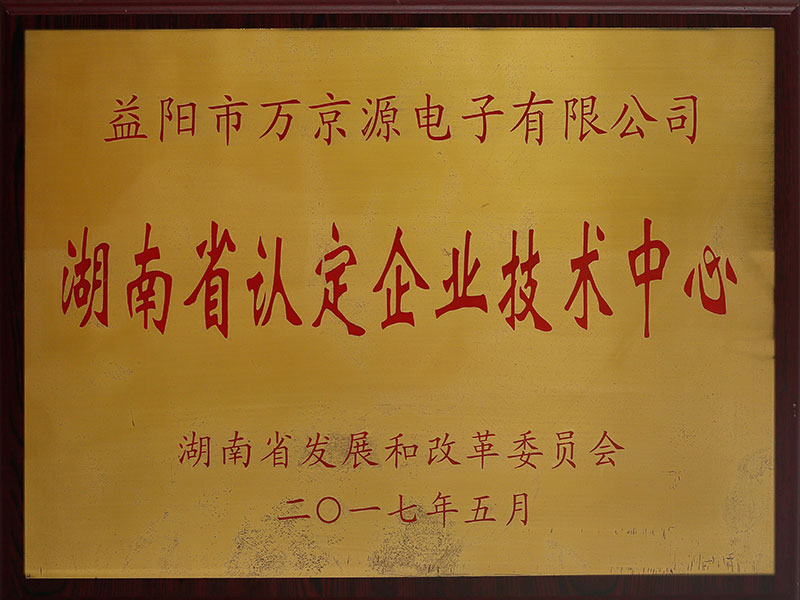 益阳市万京源电子有限公司
湖南省认定企业技术中心
湖南省发展和改革委员会
二〇一七年五月